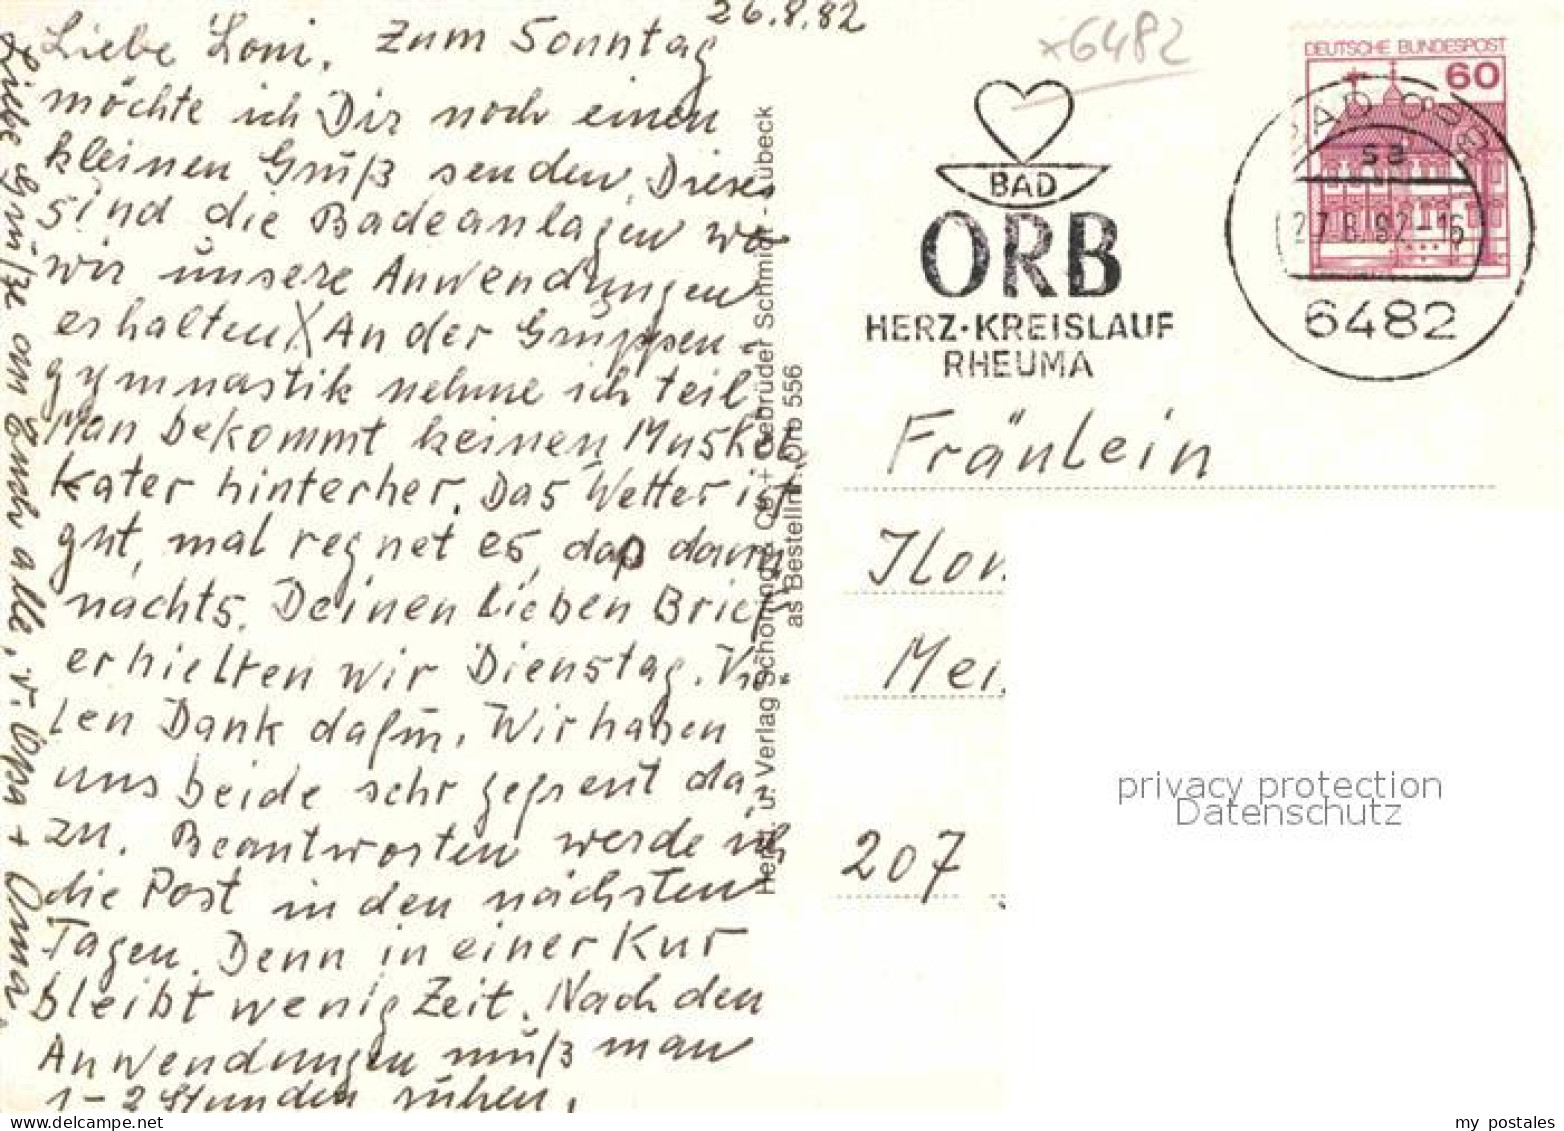 26.8.82
Liebe Loni, Zum Sonntag
möchte ich Dir noch einen
kleinen Gruß senden. Dieses
sind die Badeanlagen wo
wir unsere Anwendungen
erhalten X An der Gruppen-
gymnastik nehme ich teil.
Man bekommt keinen Muskel
kater hinterher. Das Wetter ist
gut, mal regnet es, dann
nachts. Deinen lieben Brief
erhielten wir Dienstag. Vie-
len Dank dafür. Wir haben
uns beide sehr gefreut da-
zu. Beantworten werde ich
die Post in den nächsten
Tagen. Denn in einer Kur
bleibt wenig Zeit. Nach den
Anwendungen muß man
1-2 Stunden ruhen.
Liebe Grüße an Euch alle, v. Opa + Oma.
Herst. u. Verlag Schöning & Co + Gebrüder Schmidt - Lübeck
as Bestellnr. Orb 556
x6482
BAD
ORB
HERZ·KREISLAUF
RHEUMA
DEUTSCHE BUNDESPOST
60
BAD ORB
sa
27.8.82-16
6482
Fräulein
Ilon
Mei
207
privacy protection
Datenschutz
my postales